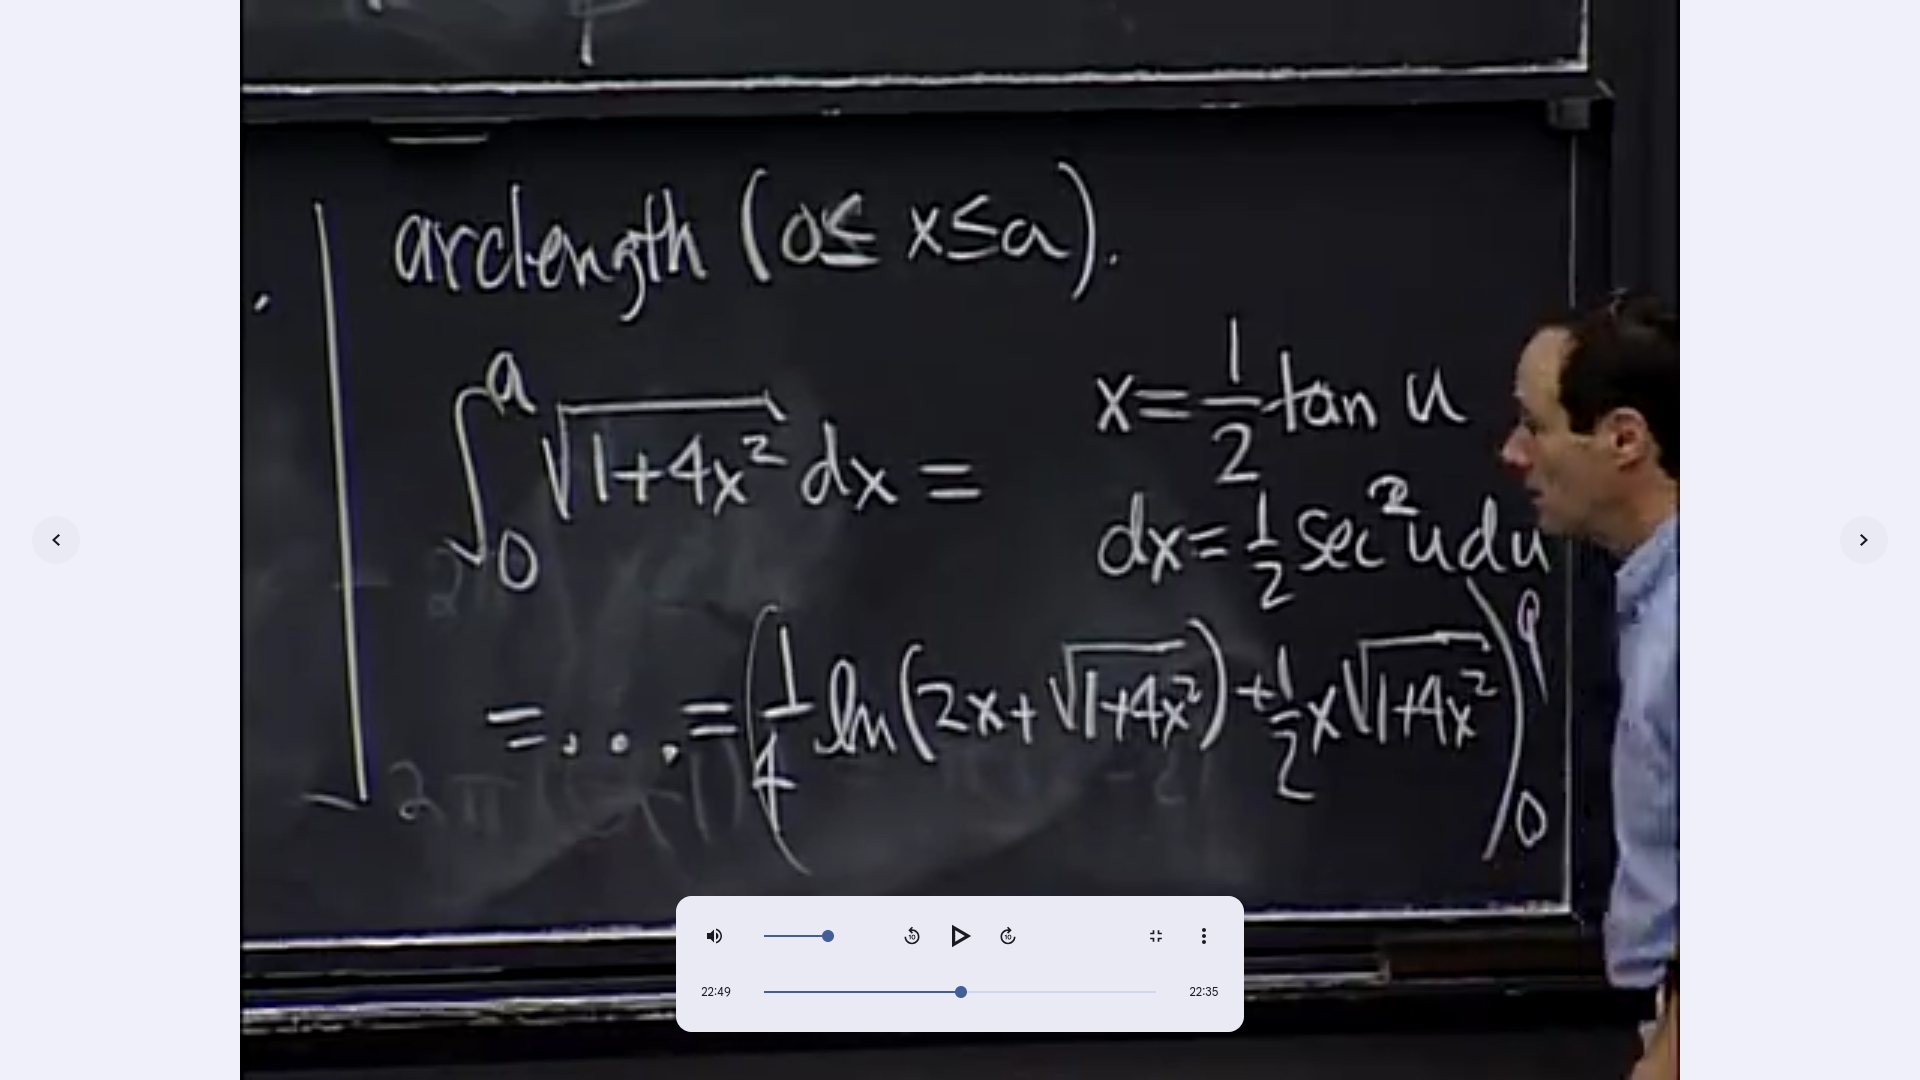 arclength (0≤ x≤a).
∫₀ᵃ √(1+4x²) dx =
x= 1/2 tan u
dx= 1/2 sec²u du
=...=(1/4 ln(2x+√(1+4x²))+1/2 x√(1+4x²))₀ᵃ
10
10
22:49
22:35